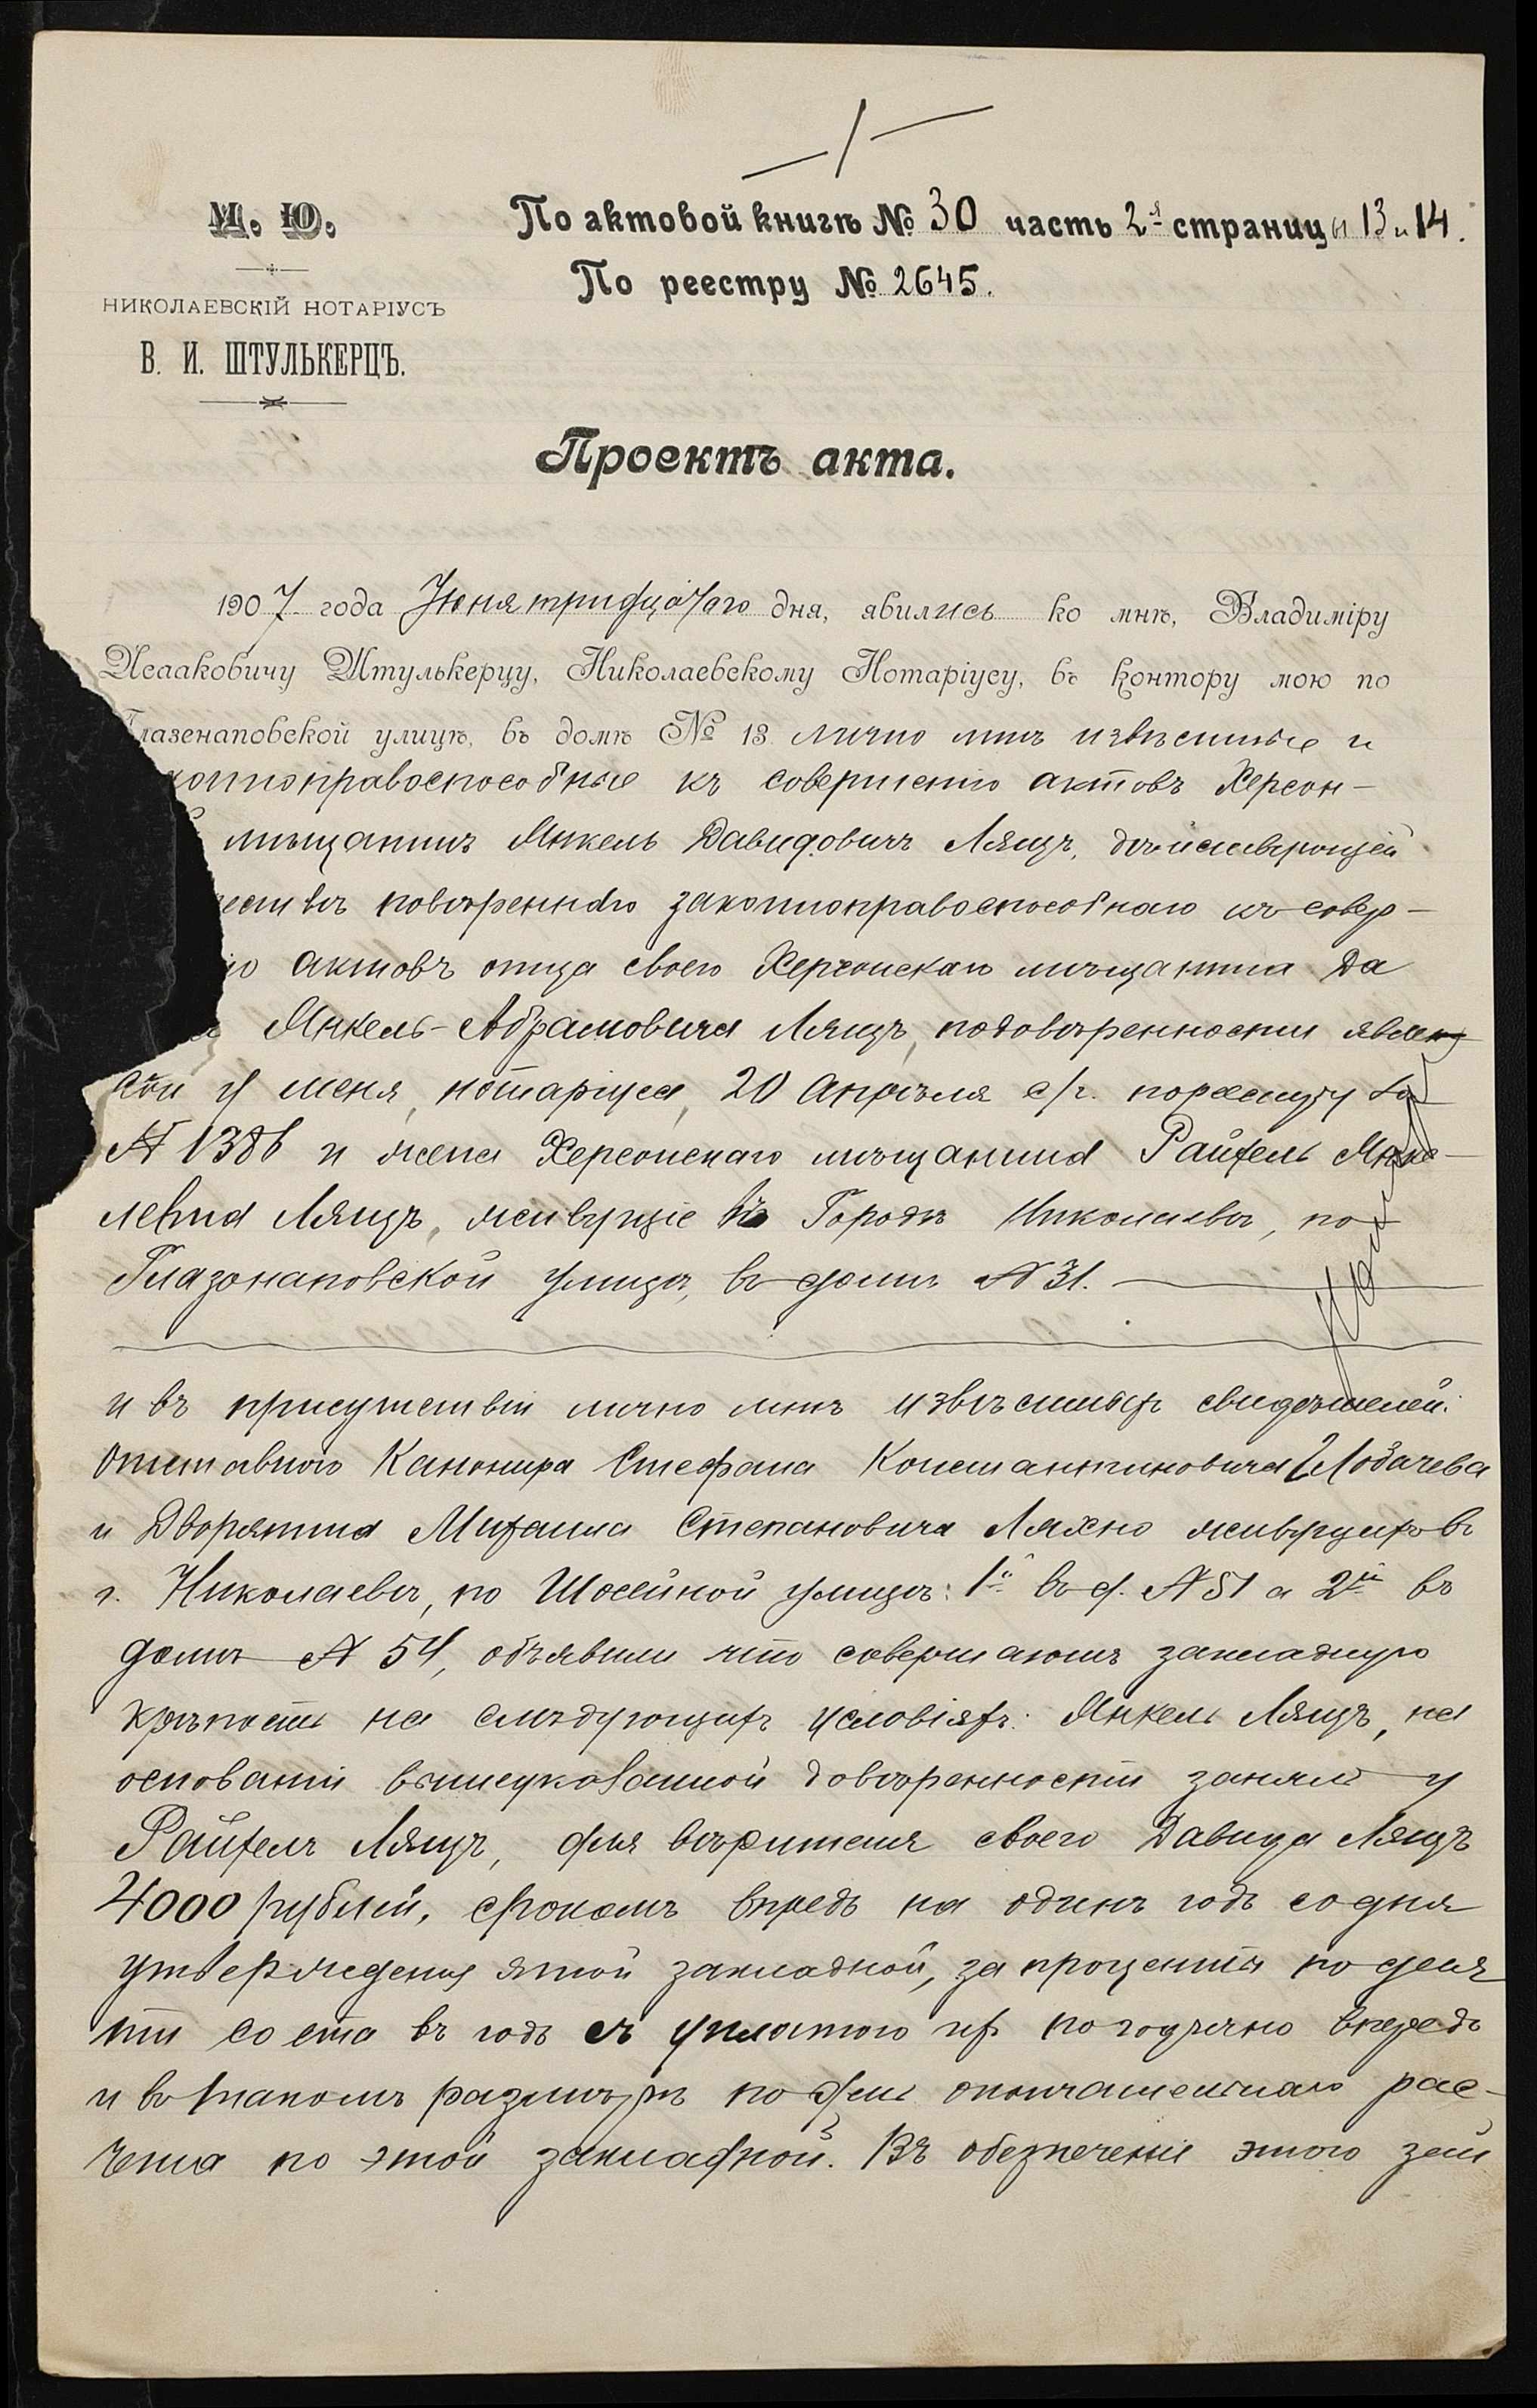 М. Ю.
НИКОЛАЕВСКІЙ НОТАРІУСЪ
В. И. ШТУЛЬКЕРЦЪ.
По актовой книгѣ № 30 часть 2я страницы 13 и 14.
По реестру № 2645.
Проектъ акта.
1907 года Іюня тридцатаго дня, явились ко мнѣ, Владиміру
Исааковичу Штулькерцу, Николаевскому Нотаріусу, въ контору мою по
лазенаповской улицѣ, въ домѣ № 13 лично мнѣ извѣстные и
конноправоспособные къ совершенію актовъ Херсон-
й мѣщанинъ Янкель Давидовичъ Лянцъ, дѣйствующій
чествѣ повѣреннаго законноправоспособнаго къ совер-
ію актовъ отца своего Херсонскаго мѣщанина Да
Янкель-Абрамовича Лянцъ, по довѣренности явлен
ной у меня, нотаріуса, 20 Апрѣля с/г. по реестру за
№ 1386 и жена Херсонскаго мѣщанина Райхель Янке-
левна Лянцъ, живущіе въ Городѣ Николаевѣ, по
Глазенаповской улицѣ, въ домѣ № 31.
и въ присутствіи лично мнѣ извѣстныхъ свидѣтелей:
Отставного Канонира Стефана Константиновича Лобачева
и Дворянина Михаила Степановича Ляхно живущихъ въ
г. Николаевѣ, по Шоссейной улицѣ: 1й въ д. № 51 а 2й въ
домѣ № 54, объявили что совершаютъ закладную
крѣпость на слѣдующихъ условіяхъ: Янкель Лянцъ, на
основаніи вышеуказанной довѣренности занялъ у
Райхель Лянцъ, для вѣрителя своего Давида Лянцъ
4000 рублей, срокомъ впредь на одинъ годъ со дня
утвержденія этой закладной, за проценты по девя
ти со ста въ годъ съ уплатою ихъ погодично впередъ
и въ такомъ размѣрѣ по день окончательнаго рас-
чета по этой закладной. Въ обезпеченіе этого зай